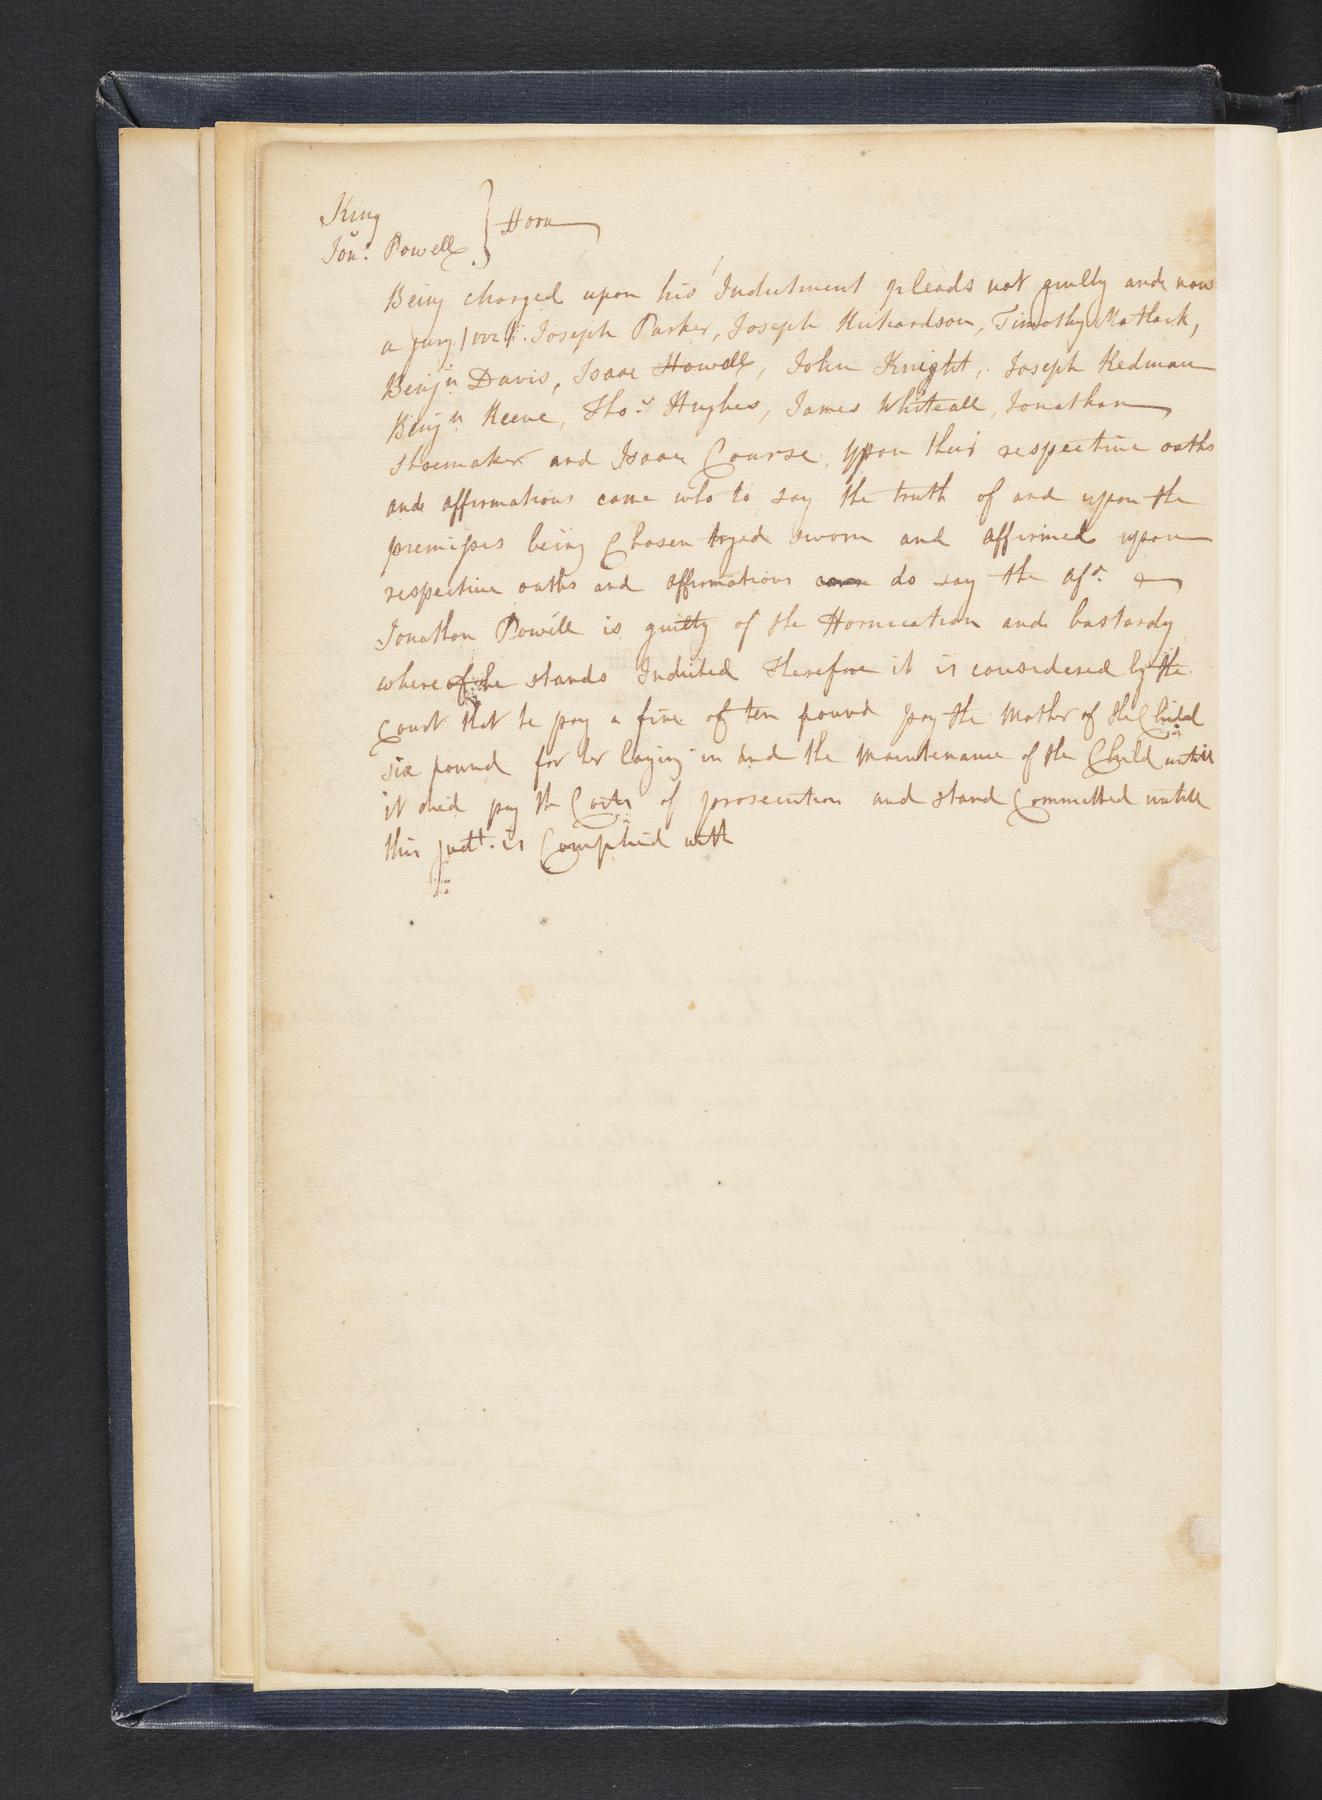 King
Jon: Powell } Horn
Being charged upon his Indictment pleads not guilty and now
a jury Joseph Parker, Joseph Richardson, Timothy Matlack,
Benjn Davis, Isaac Howell, John Knight, Joseph Redman
Benjn Reeve, Thos Hughes, James Whiteall, Jonathan
Shoemaker and Isaac Course, upon their respective oaths
and affirmations came who to say the truth of and upon the
premises being Chosen tryed sworn and affirmed upon
respective oaths and affirmations do say the afd
Jonathan Powell is guilty of the Hornication and bastardy
whereof he stands Indicted therefore it is considered by the
Court that he pay a fine of ten pound pay the Mother of the Child
six pound for her laying in and the Maintenance of the Child untill
it died pay the Costs of prosecution and stand Committed untill
this judt. is Complied with